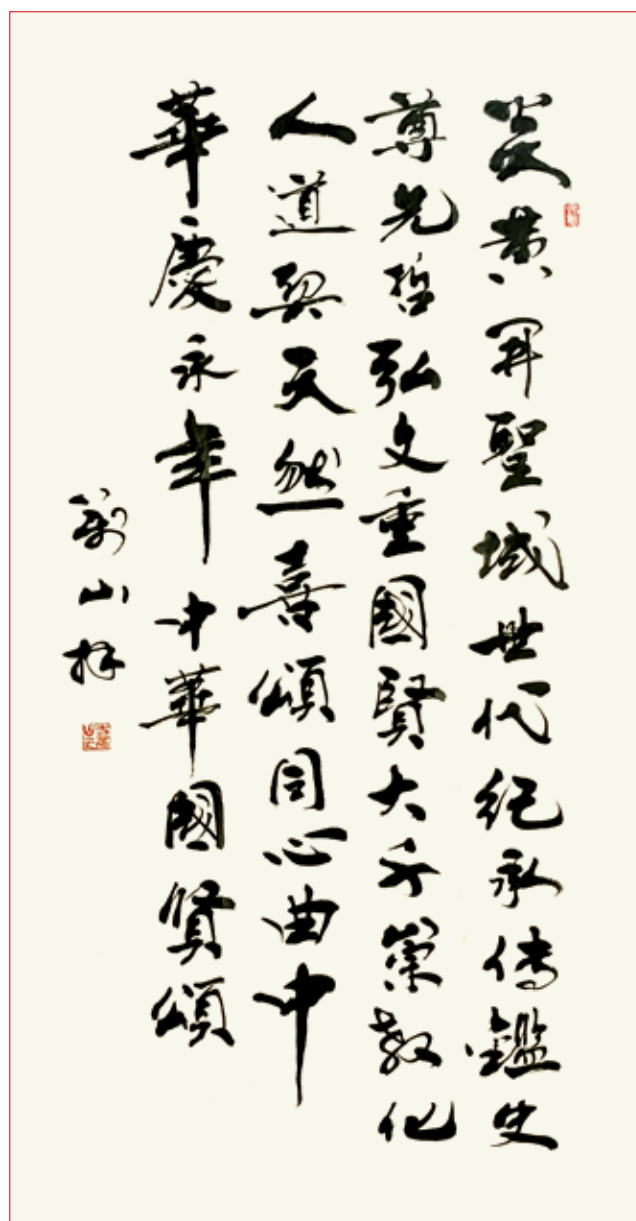 炎黃開聖域世代紀承傳鑑史
尊先哲弘文重國賢大千崇教化
人道契天然喜頌同心曲中
華慶永年中華國賢頌
山